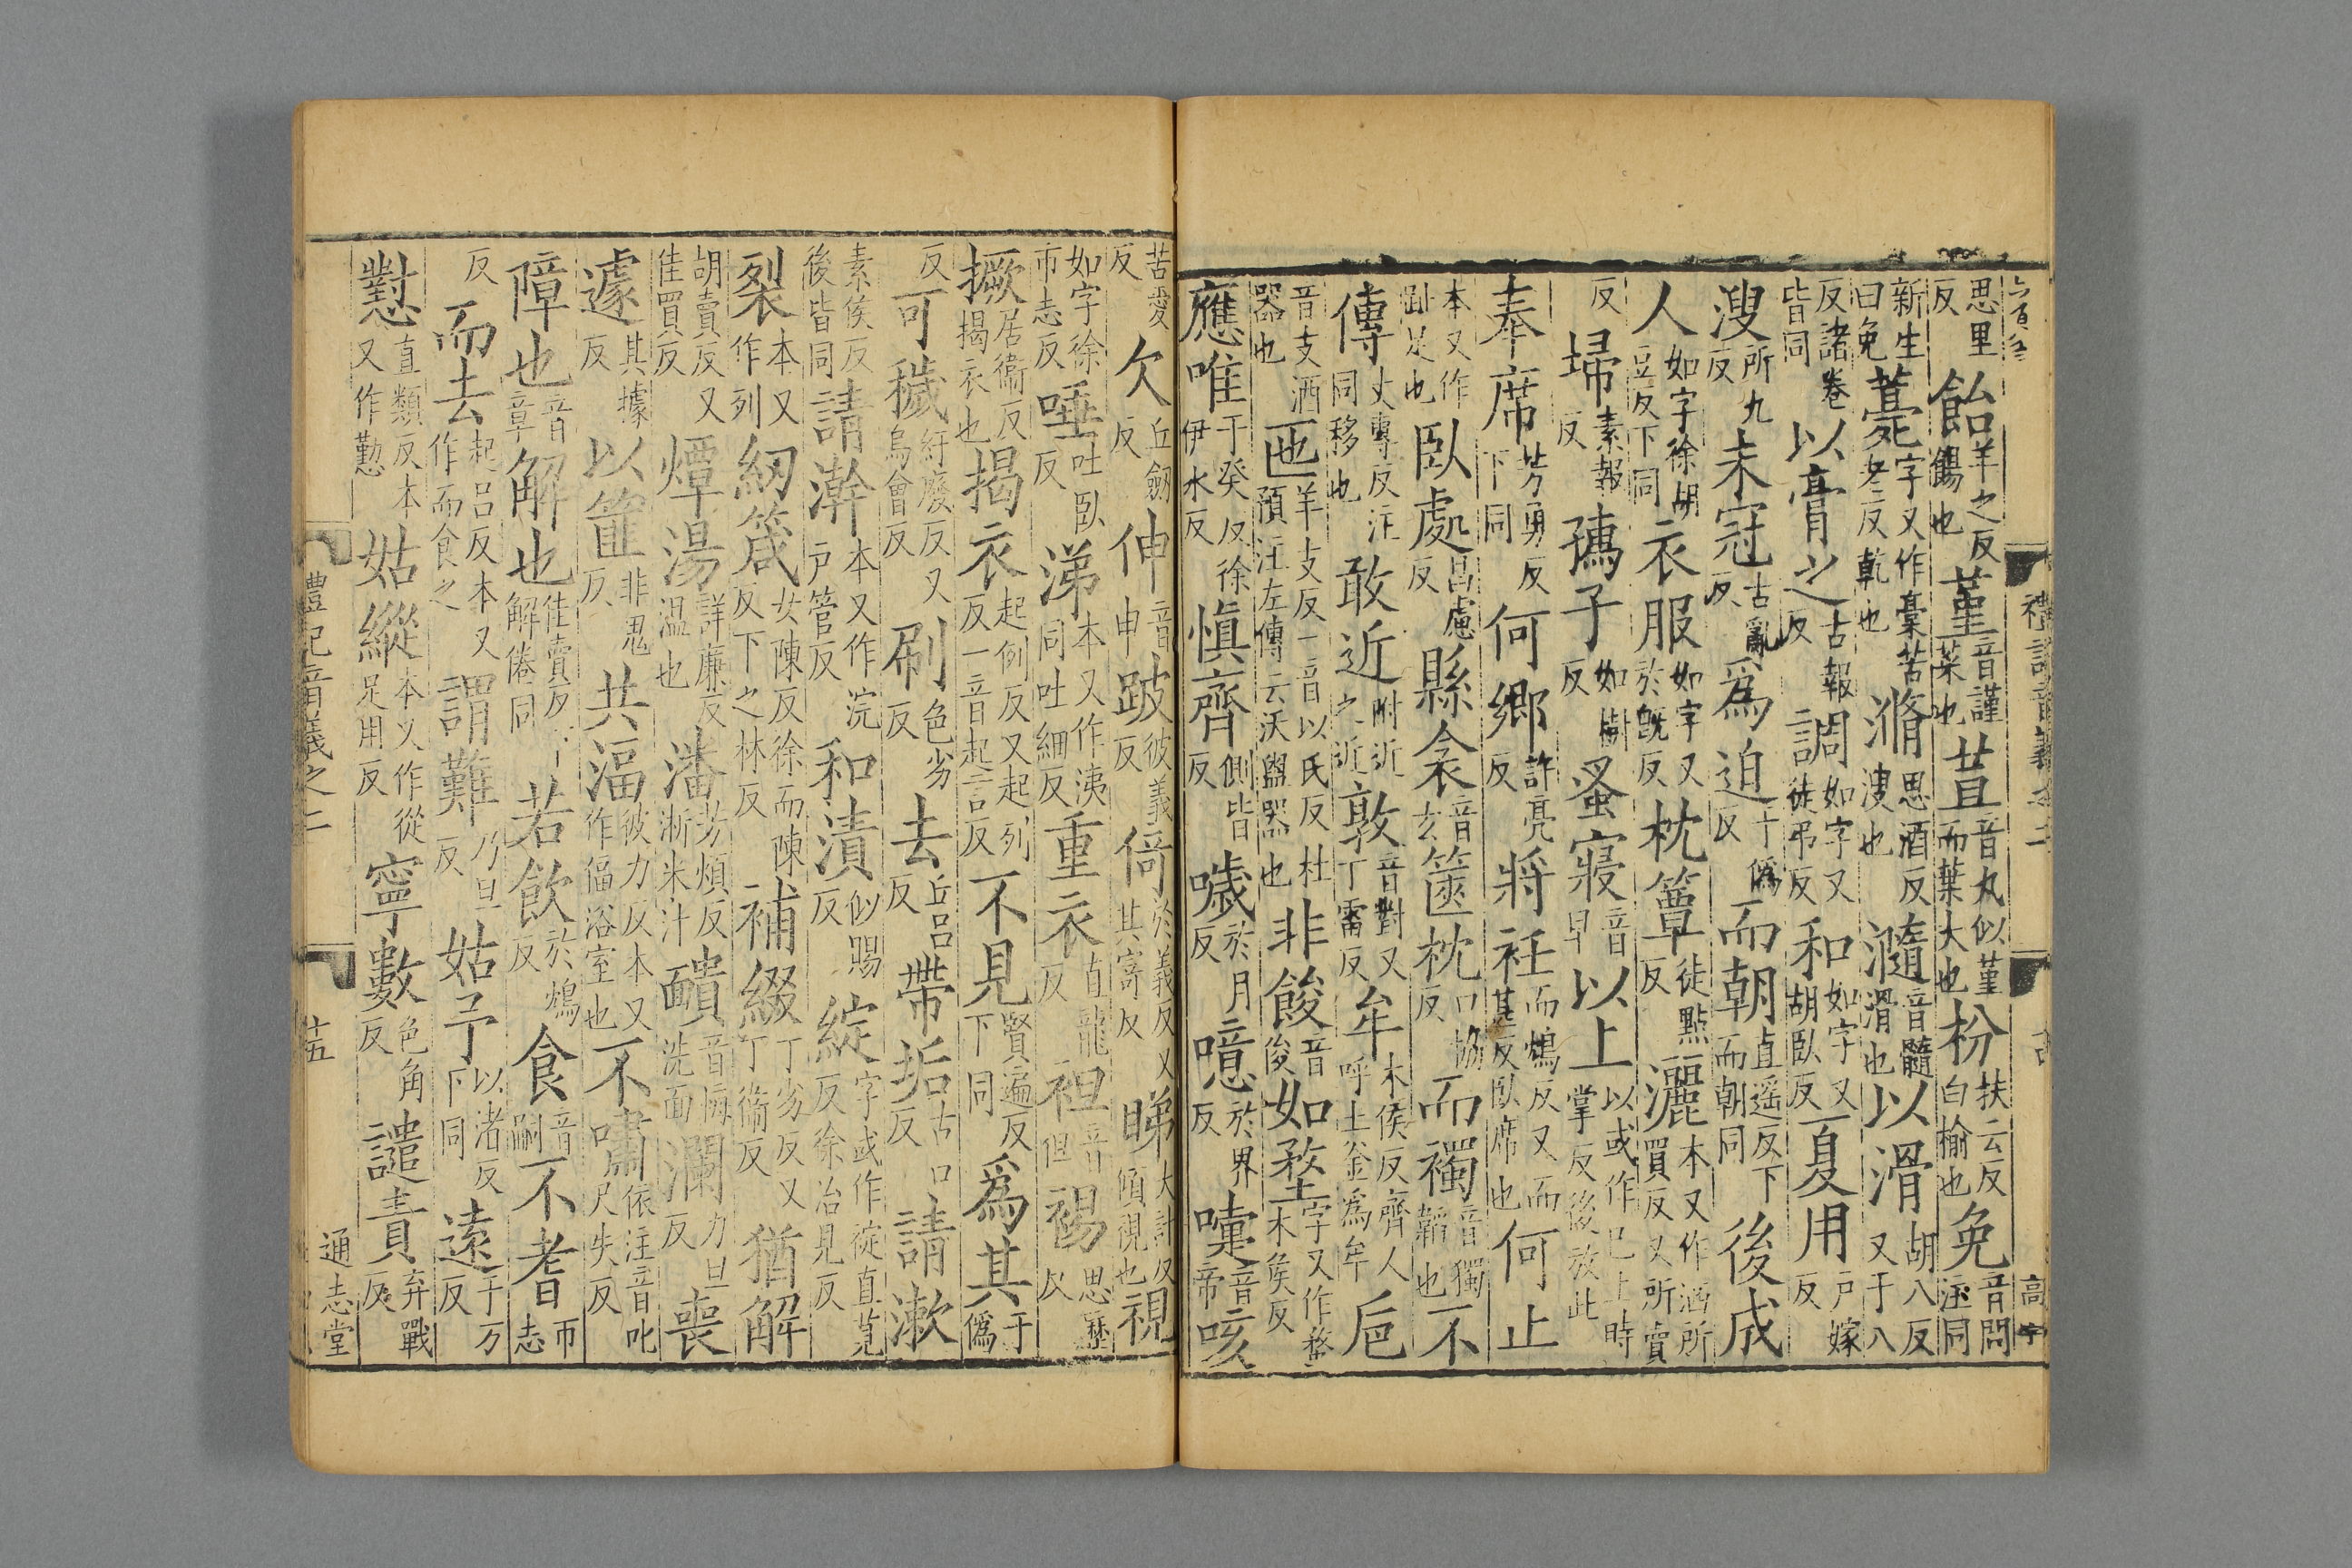 思里反飴羊之反餳也菫音謹菜也荁音丸似菫而葉大也枌扶云反白榆也免音問注同
新生曰免薧字又作槀苦老反乾也滫思酒反溲也瀡音髓滑也以滑胡八反又于八
反諸卷皆同以膏之古報反調如字又徒弔反和如字又胡臥反夏用戸嫁反
溲所九反未冠古亂反爲迫于僞反而朝直遥反下而朝同後成
人如字徐胡豆反下同衣服如字又於旣反枕簟徒點反灑本又作洒所買反又所賣
反埽素報反孺子如樹反蚤寢音早以上以或作已上時掌反後放此
奉席芳勇反下同何鄉許亮反將衽而鴆反又而甚反臥席也何止
本又作趾足也臥處昌慮反縣衾音玄篋枕口協反而襡音獨韜也不
傳丈專反注同移也敢近附近之近敦音對又丁雷反牟木侯反齊人呼土釜爲牟巵
音支酒器也匜羊支反一音以氏反杜預注左傳云沃盥器也非餕音俊如堥字又作蝥木侯反
應唯于癸反徐伊水反愼齊側皆反噦於月反噫於界反嚏音帝咳
苦愛反欠丘劒反伸音申跛彼義反倚於義反又其寄反睇大計反傾視也視
如字徐市志反唾吐臥反涕本又作洟同吐細反重衣直龍反袒音但裼思歷反
撅居衞反揭衣也揭衣起例反又起列反一音起言反不見賢遍反下同爲其于僞
反可穢紆廢反又烏會反刷色劣反去丘呂反帶垢古口反請漱
素侯反後皆同請澣本又作浣戸管反和漬似賜反綻字或作䋎直莧反徐冶見反
裂本又作列紉箴女陳反徐而陳反下之林反補綴丁劣反又丁衞反猶解
胡賣反又佳買反燂湯詳廉反温也潘芳煩反淅米汁靧音悔洗面瀾力旦反喪
遽其據反以篚非鬼反共湢彼力反本又作偪浴室也不嘯依注音叱尺失反
障也音章解也佳賣反下解倦同若飲於鴆反食音嗣不耆市志
反而去起呂反本又作而食之謂難乃旦反姑予以渚反下同遠于万反
懟直類反本又作懃姑縱本又作從足用反寧數色角反譴責弃戰反
禮記音義之二
廿五
通志堂